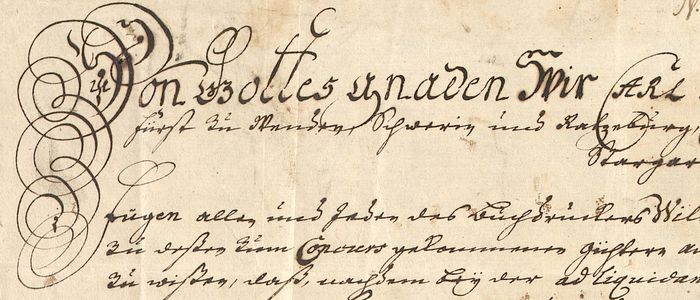 Von Gottes Gnaden Wir Carl
Fürst zu Wenden, Schwerin und Ratzeburg,
Stargar
Fügen allen und Jeden des Buchdruckers Wil
zu deßen zum Concurs gekommenen Güthern
zu wißen, daß, nachdem bey der ad liquidan